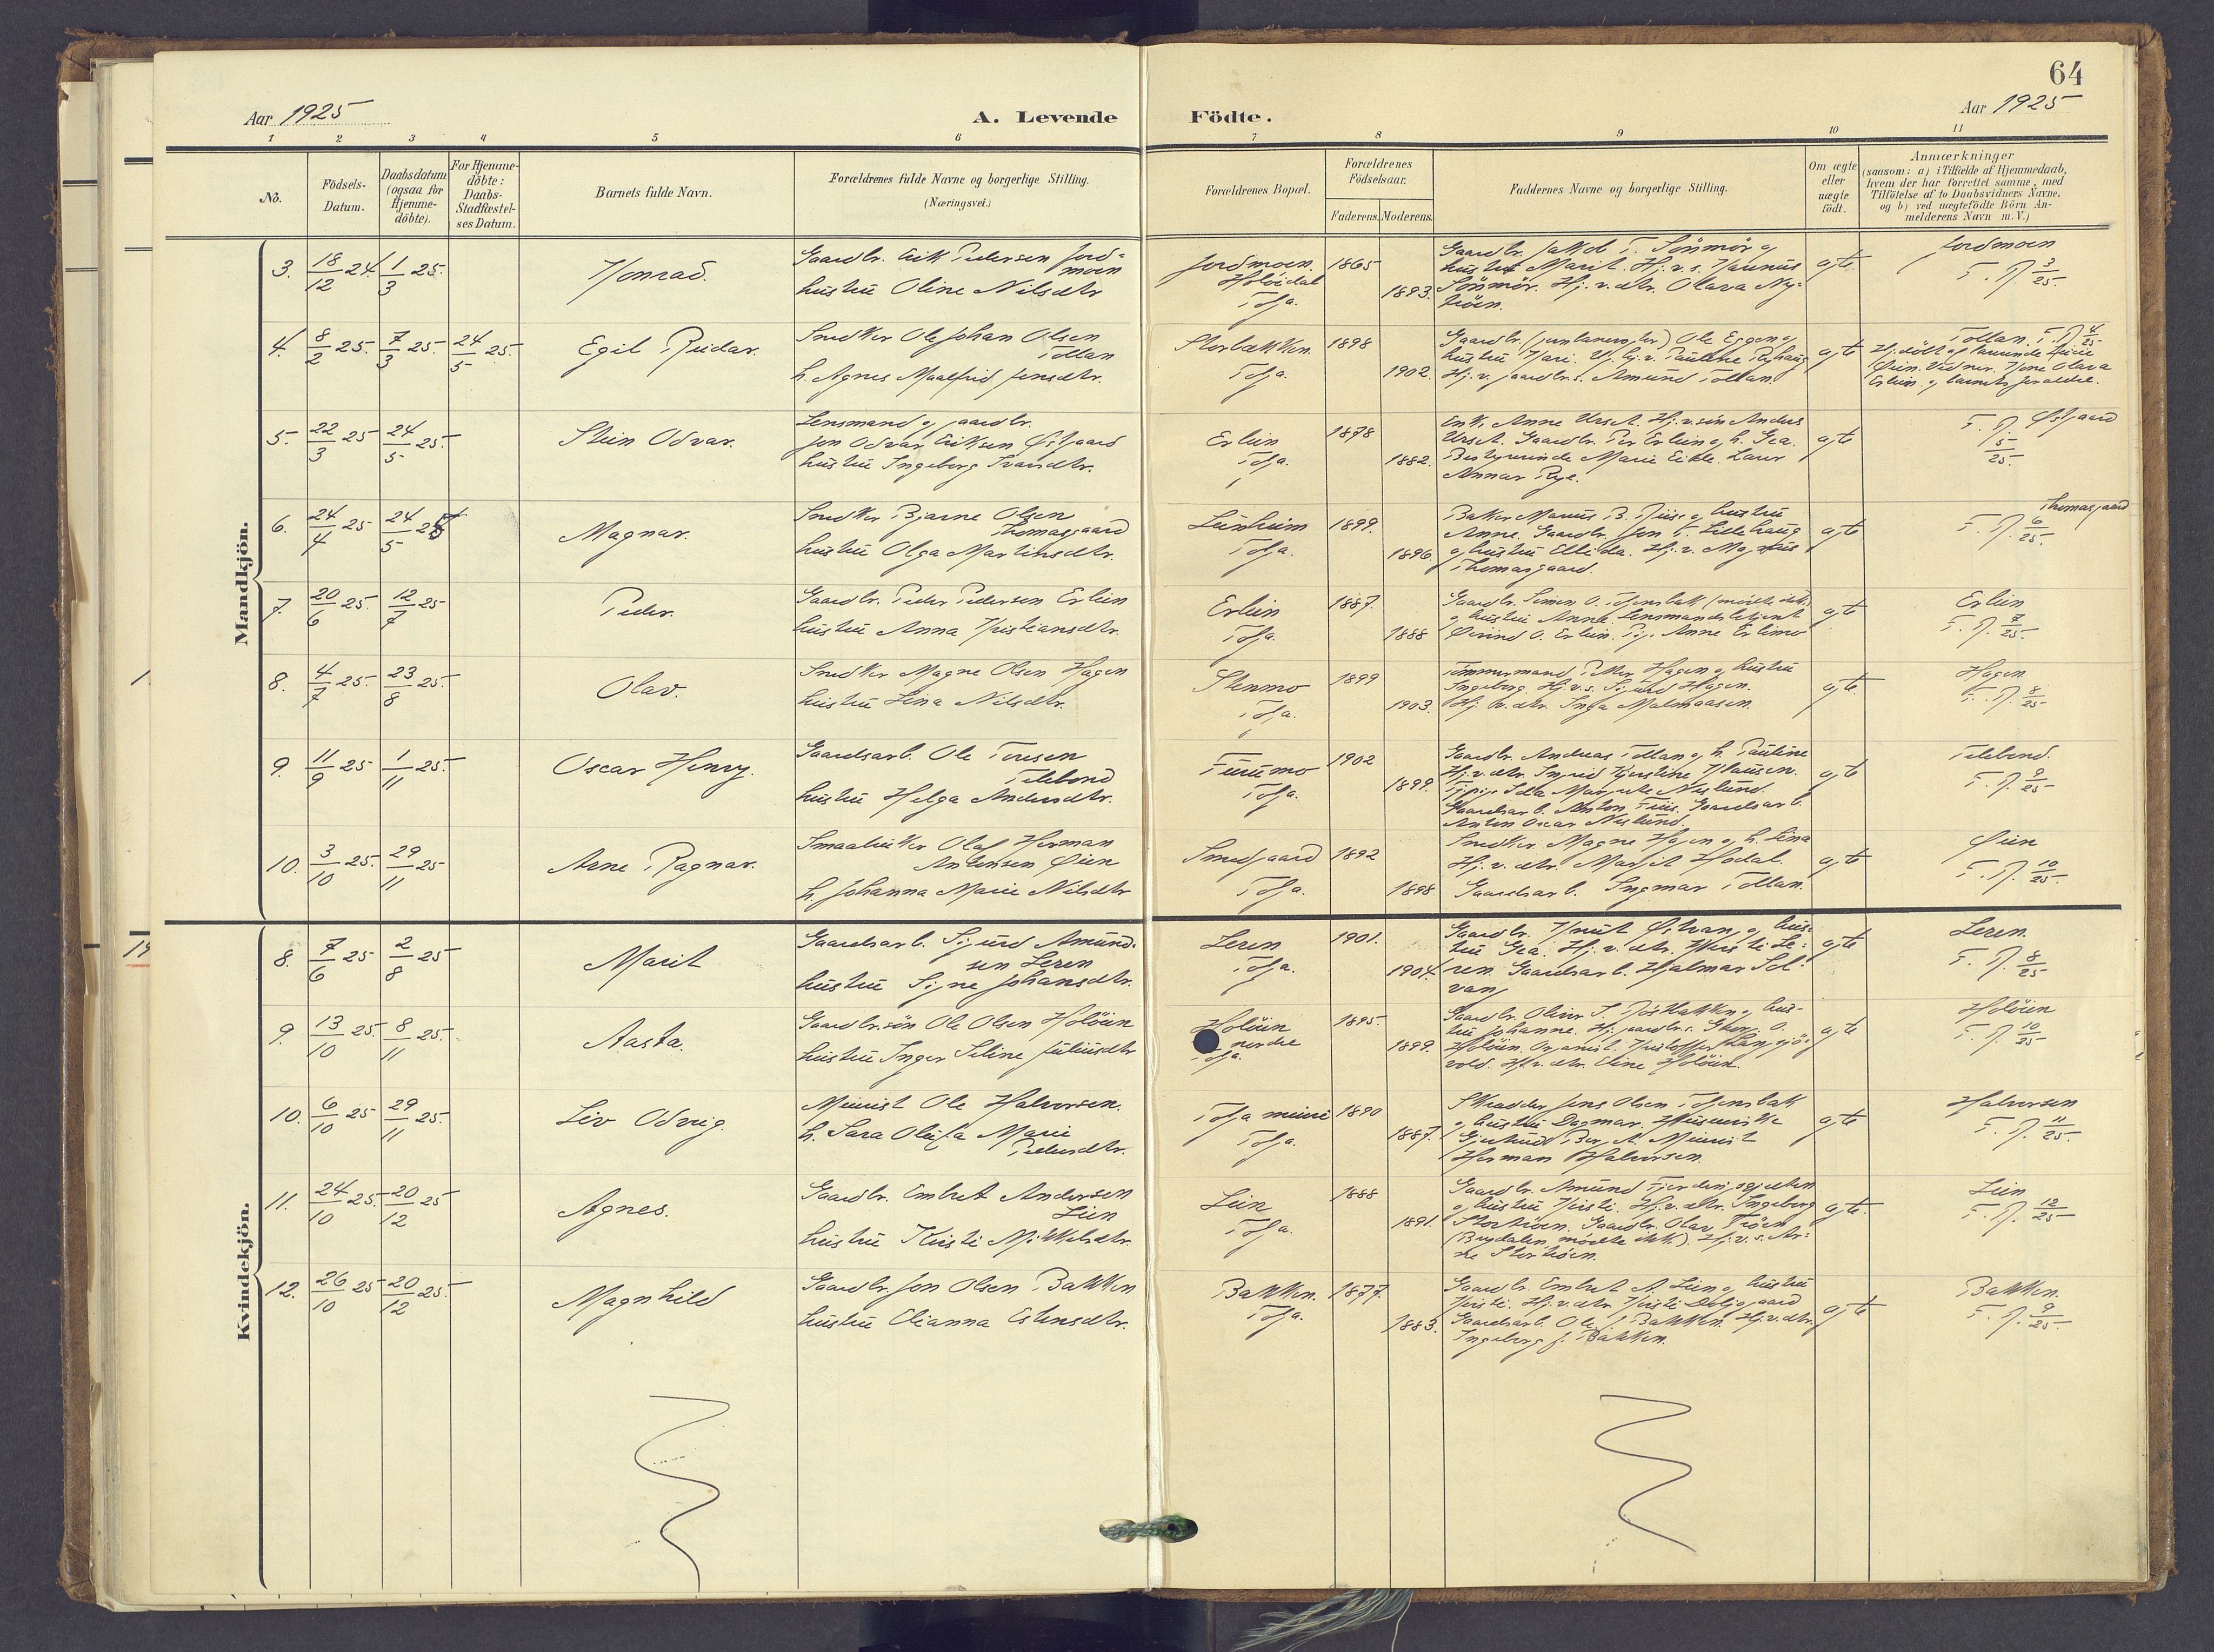 64
Aar 1925
A. Levende Födte.
Aar 1925
1 2 3 4 5 6 7 8 9 10 11
No.
Födsels-Datum.
Daabsdatum (ogsaa for Hjemme-döbte).
For Hjemme-döbte: Daabs-Stadfæstel-ses Datum.
Barnets fulde Navn.
Forældrenes fulde Navne og borgerlige Stilling.
(Næringsvei.)
Forældrenes Bopæl.
Forældrenes Födselsaar.
Faderens. Moderens.
Faddernes Navne og borgerlige Stilling.
Om ægte eller uægte födt.
Anmærkninger
(saasom: a) i Tilfælde af Hjemmedaab,
hvem der har forrettet samme, med
Tilföielse af to Daabsvidners Navne,
og b) ved uægtefödte Börn An-
melderens Navn m. V.)
Mandkjön.
3. 18/12 24. 1/3 25. Konrad.
Gaardbr. Erik Pedersen Jord-
moen
hustru Oline Nilsdtr
Jordmoen. Holöidal Tolga.
1865 1893.
Gaardbr. Jakob T. Sönmör og
hustru Marit. Hj.v.s. Hannus
Sönmör. Hj.v.dtr. Olava Ny-
tröen.
ægte
Jordmoen
F. N. 3/25.
4. 8/2 25. 7/3 25. 24/5 25. Egil Reidar.
Snedker Ole Johan Olsen
Tollan
h. Agnes Maalfrid Jensdtr.
Storbakken. Tolga.
1898 1902.
Gaardbr. Ole Eggen og
hustru Kari. Pauline Ryhaug
Hj.v. gaardbr.s. Amund Tollan
ægte
Tollan. F. N. 4/25
5. 22/3 25 24/5 25. Stein Odvar.
Lensmand og gaardbr.
Jon Odvar Eriksen Östgaard
hustru Ingeborg Ivarsdtr.
Erlien Tolga.
1878 1882.
Enk. Anne Urset. Hj.v.sön Anders
Urset. Gaardbr. Per Erlien og h. Gea.
Bestyrerinde Marie Eide. Lærer
Annar Rye.
ægte
Östgaard
F. N. 5/25.
6. 24/4 25 24/5 25 Magnar.
Snedker Bjarne Olsen
Thomasgaard
hustru Olga Martinsdtr.
Lienheim Tolga.
1899. 1896.
Baker Marius B. Riise og hustru
Anne. Gaardbr. Jon T. Lillehaug
og hustru Ellida. Hj.v. Magnus
Thomasgaard.
ægte
Thomasgaard
F. N. 6/25.
7. 20/6 25. 12/7 25 Peder.
Gaardbr. Peder Pedersen Erlien
hustru Anna Kristiansdtr.
Erlien Tolga.
1887. 1888
Gaardbr. Simen O. Tolgensbak (mödte ikke)
og hustru Anne. Lensmandsbetjent
Öivind O. Erlien. Pige Anne Erlimo
ægte
Erlien
F. N. 7/25.
8. 4/7 25. 23/8 25. Olav.
Snedker Magne Olsen Hagen
hustru Lina Nilsdtr.
Stenmo Tolga.
1899 1903.
Tömmermand Peder Hagen og hustru
Ingeborg. Hj.v.s. Sigurd Hagen.
Hj.v.dtr. Inga Malmaasen.
ægte
Hagen
F. N. 8/25
9. 11/9 25 1/11 25. Oscar Henry.
Gaardsarb. Ole Tonsen
Telebond
hustru Helga Andersdtr.
Furumo Tolga.
1902 1899.
Gaardbr. Andreas Tollan og h. Pauline
Hj.v.dtr. Ingrid Kjerstine Klausen.
Tj.pige Ida Margrete Neslund.
Gaardsarb. Anton Friis. Gaardsarb.
Anton Oscar Neslund.
ægte
Telebond.
F. N. 9/25
10. 3/10 25. 29/11 25 Arne Ragnar.
Smaabruker Olaf Herman
Antonsen Öien
h. Johanna Marie Nilsdtr
Smedgaard Tolga.
1892 1898
Snedker Magne Hagen og h. Lina
Hj.v.dtr. Margit Hodal.
Gaardsarb. Ingmar Tollan.
ægte
Öien
F. N. 10/25.
Kvindekjön.
8. 7/6 25 2/8 25 Marit
Gaardsarb. Sigurd Amund-
sen Leren
hustru Signe Johansdtr.
Leren Tolga.
1901. 1904.
Gaardbr. Knut Östvang og hus-
tru Gea. Hj.v.dtr. Kirsti Le-
ren. Gaardsarb. Hjalmar Sol-
vang
ægte
Leren.
F. N. 8/25
9. 13/10 25. 8/11 25. Aasta.
Gaardbr.sön Ole Olsen Holöien
hustru Inger Seline Juliusdtr
Holöien nordre Tolga.
1895. 1899.
Gaardbr. Oliver S. Röstbakken og hus-
tru Johanne. Hj. gaardbr.s. O.
Holöien. Organist. Kristoffer Langsjö-
vold. Hj.v.dtr. Eline Holöien.
ægte
Holöien
F. N. 10/25
10. 6/10 25 29/11 25. Liv Odveig.
Meierist Ole Halvorsen.
h. Sara Oleifa Marie
Pedersdtr.
Tolga meieri Tolga.
1890 1887.
Skredder Jens Olsen Tolgensbak
og hustru Dagmar.
Gjertrud Berg. Meierist
Herman Halvorsen.
ægte
Halvorsen
F. N. 11/25.
11. 24/10 25. 20/12 25 Agnes.
Gaardbr. Embret Andersen
Lien
hustru Kirsti Mikkelsdtr.
Lien Tolga.
1888 1891.
Gaardbr. Amund Fjerdingsgjelten
og hustru Kirsti. Hj.v.dtr. Ingeborg
Stortröen. Gaardbr. Olav Tröen
(Bugdalen mödte ikke). Hj.v.s. Ar-
ne Stortröen.
ægte.
Lien
F. N. 12/25
12. 26/10 25 20/12 25. Magnhild
Gaardbr. Jon Olsen Bakken
hustru Elianna Estensdtr.
Bakken. Tolga.
1877. 1883.
Gaardbr. Embret A. Lien og hustru
Kirsti. Hj.v.dtr. Kirsti
Gaardsarb. Ole J. Bakken. Hj.v.dtr.
Ingeborg J. Bakken.
ægte
Bakken.
F. N. 9/25.